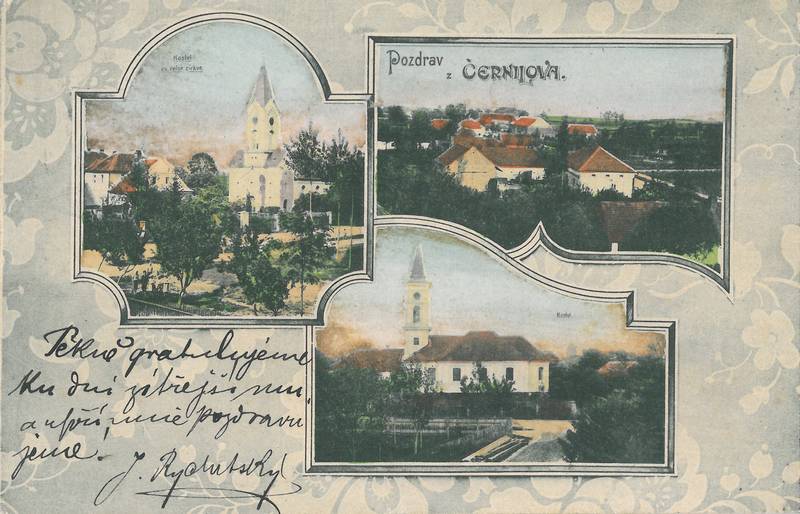 Kostel
Pozdrav
z ČERNILOVA.
Kostel
Pěkně gratulujeme
Ku dni zítřejšímu
a upřímně pozdravu
jeme.
J. Rydutský